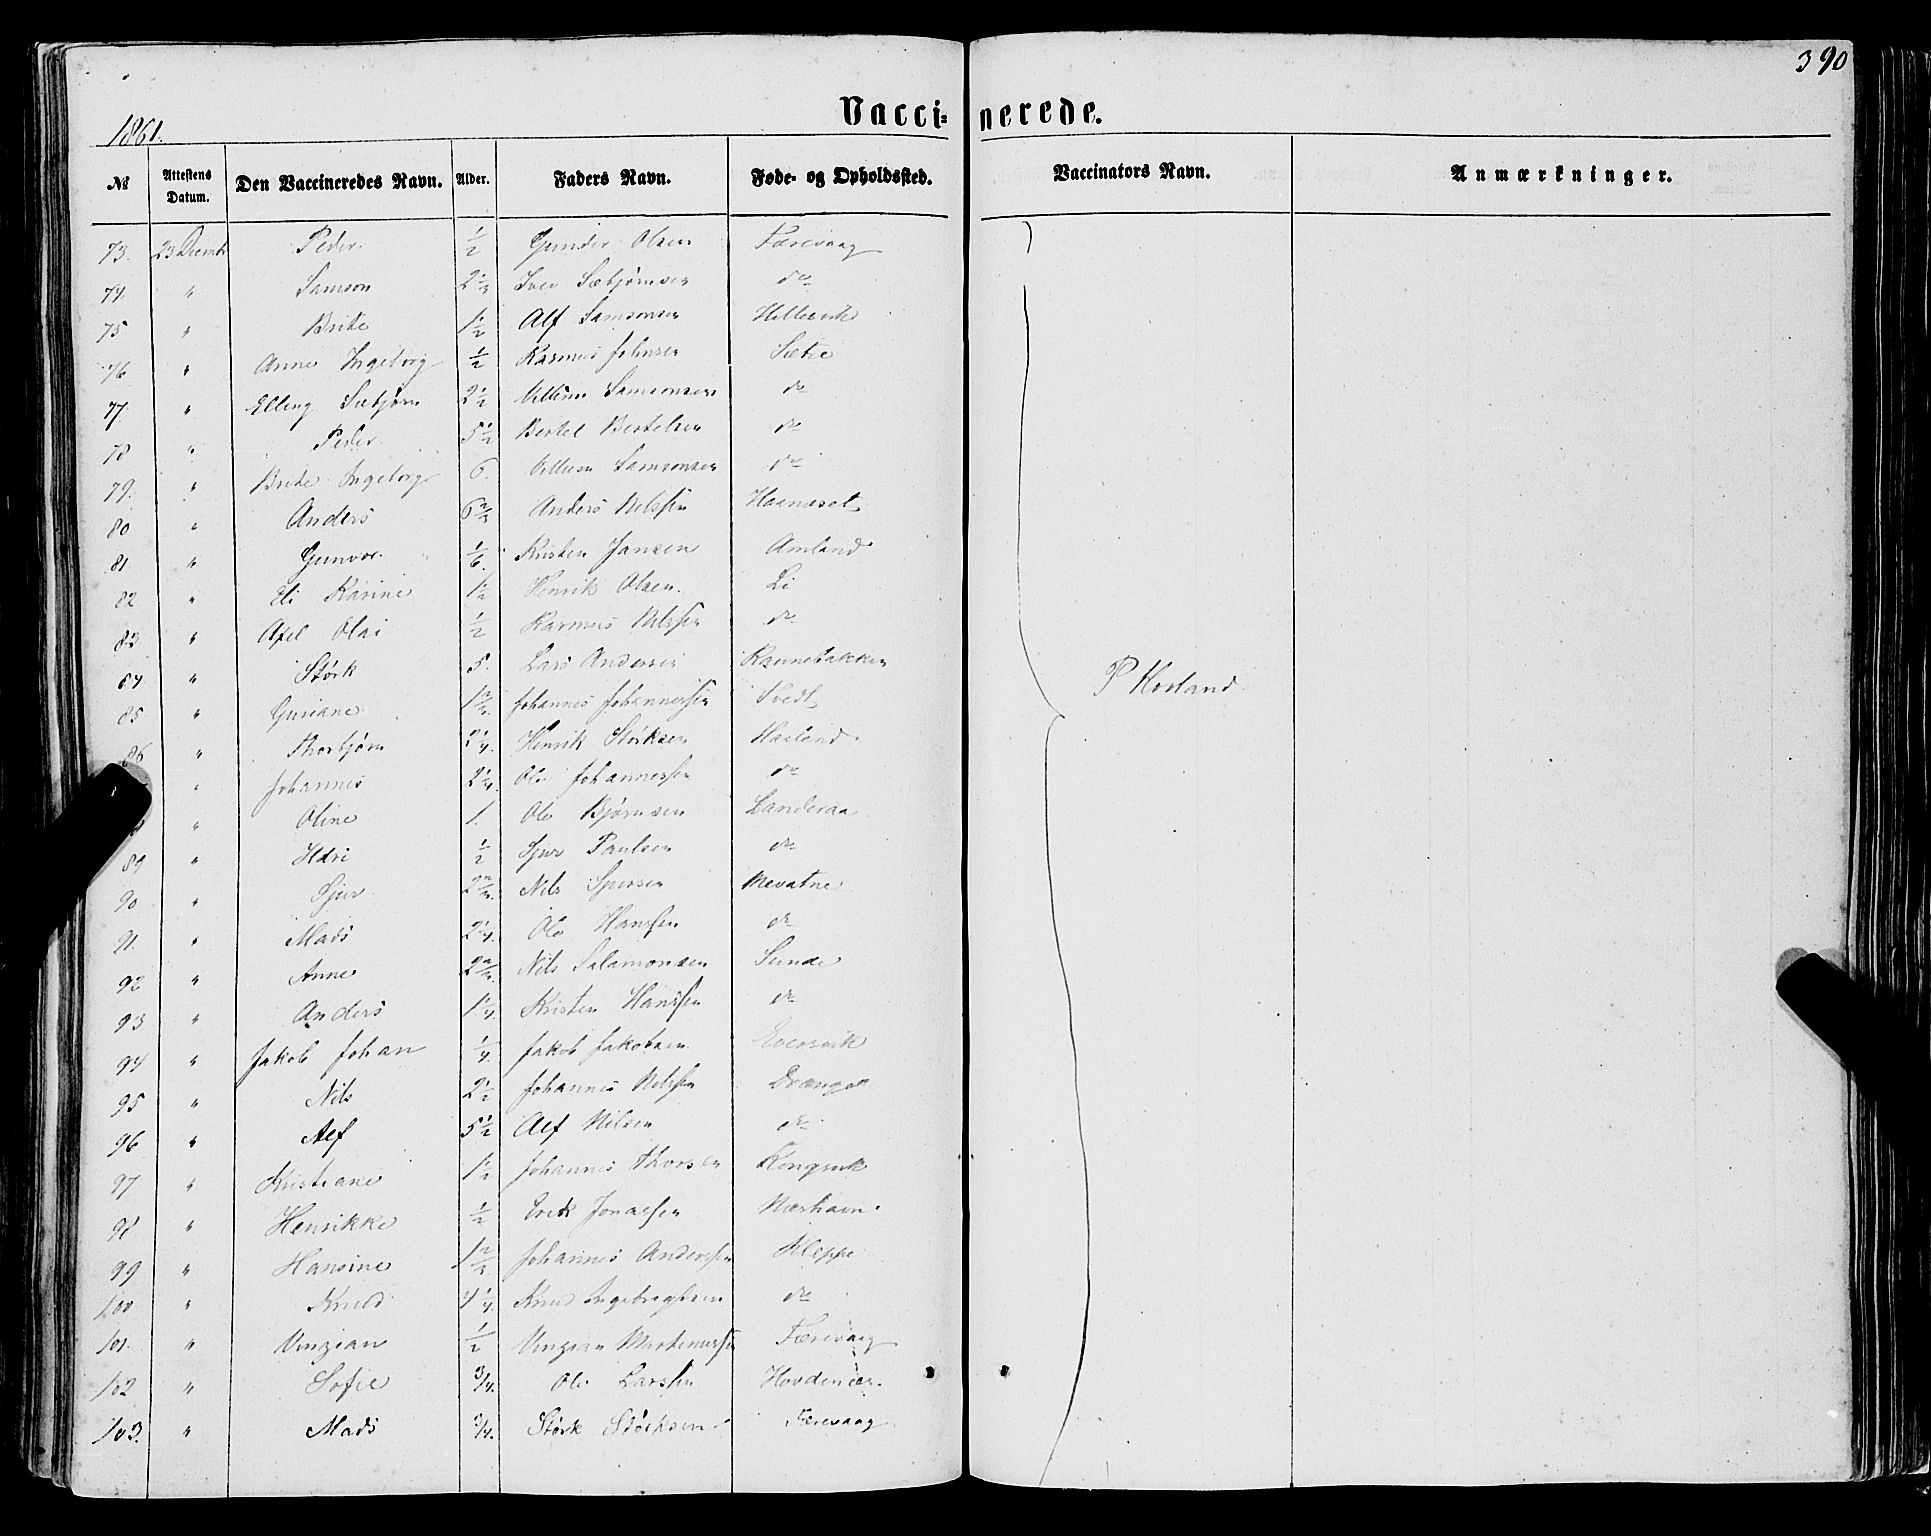 390
1861.
Vaccinerede.
№ Attestens Datum. Den Vaccineredes Navn. Alder. Faders Navn. Føde- og Opholdssted. Vaccinators Navn. Anmærkninger.
73. 23 Decemb Peder 1/2 Gunder Olsen Færevaag
74. " Samson 2 1/3 Iver Sæbjørnsen do
75 " Brite 1 1/2 Alf Samsonsen Hillevik
76 " Anne Ingeborg 1/2 Rasmus Johnsen Sætre
77. " Elling Sæbjørn 2 1/2 Villum Samsonsen do
78 " Peder 5 1/2 Bertel Bertelsen do
79. " Brite Ingeborg 6. Villum Samsonsen do
80 " Anders 6 2/3 Anders Nilssen
81. " Gunvor 1/6. Kristen Jansen Amland
82 " Eli Karine 1 1/2 Henrik Olsen. Li
83 " Axel Olai 1/2 Rasmus Nilssen do
84 " Størk 5. Lars Andersen Rannebakken
85 " Guriane 1 2/3. Johannes Johannessen Svedt
86 " Thorbjørn 2 1/4. Henrik Størksen Haaland
" Johannes 2 1/4 Ole Johannessen do
" Oline 1. Ole Bjørnsen Landeraa
89 " Ildri 1/2 Sjur Paulsen do
90 " Sjur 2 2/3. Nils Sjursen Mevatne
91. " Mads 2 1/4. Ole Hanssen do
92 " Anne 2 2/3. Nils Salamonsen Sunde
93 " Anders 1 1/4. Kristen Hanssen do
94 " Jakob Johan 1/4. Jakob Jakobsen
95 " Nils 2 1/2 Johannes Nilssen
96 " Alf 5 1/2 Alf Nilsen do
97 " Kristiane 1 1/2 Johannes Thorsen
98 " Henrikke 1/2 Erik Jonassen
99 " Hansine 1 2/3 Johannes Anderssen Kleppe
100 " Knud 4 1/4. Knud Ingebregtsen do
101. " Vingian 1/2 Vingian Mortenussen Færevaag
102 " Sofie 3/4. Ole Larssen
103. " Mads 3/4. Størk Størksen Færevaag
P Hovland